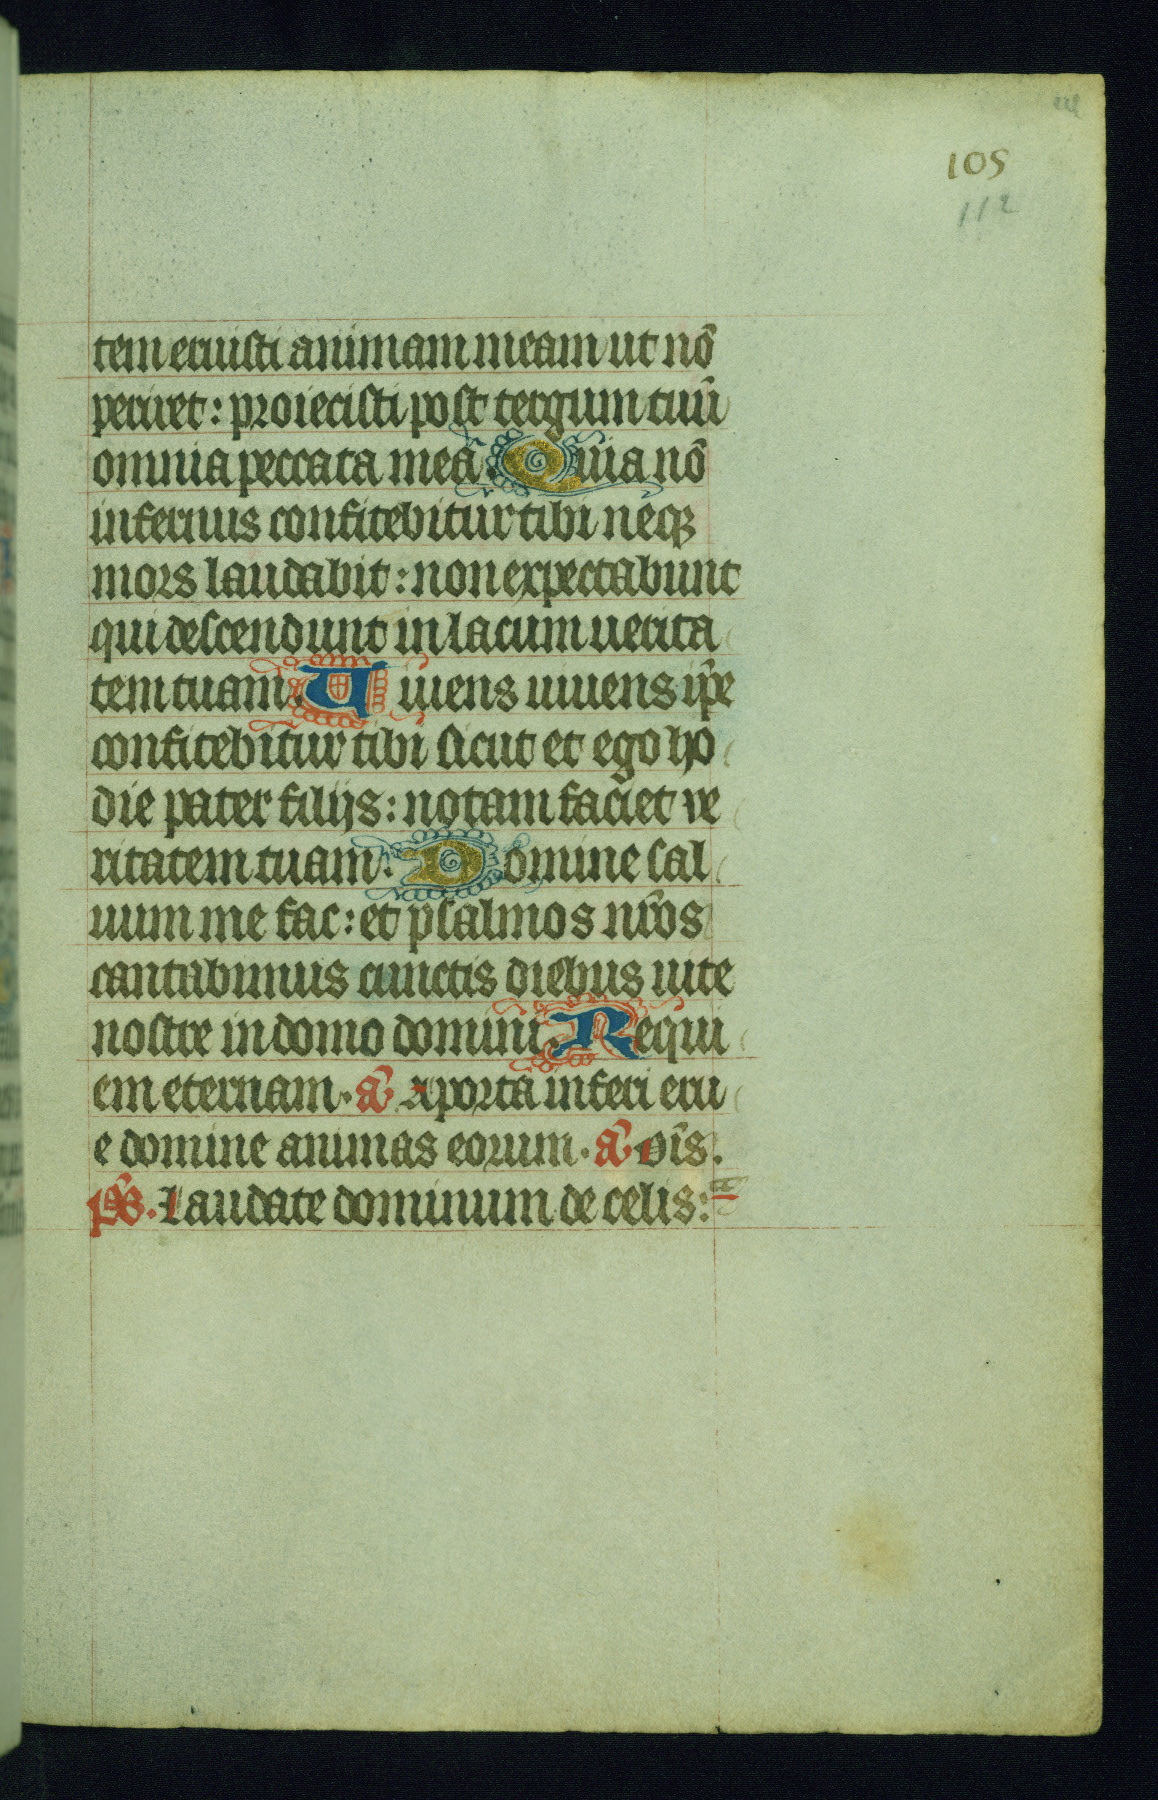 105
112
tem eruisti animam meam ut nō
periret: proiecisti post tergum tuū
omnia peccata mea. Quia nō
infernus confitebitur tibi neqꝫ
mors laudabit: non expectabunt
qui descendunt in lacum uerita
tem tuam. Uiuens uiuens ip̄e
confitebitur tibi sicut et ego ho
die pater filijs: notam faciet ve
ritatem tuam. Domine sal
uum me fac: et psalmos nr̄os
cantabimus cunctis diebus uite
nostre in domo domini. Requi
em eternam. añ A porta inferi eru
e domine animas eorum. añ Oīs.
ps̄. Laudate dominum de celis: